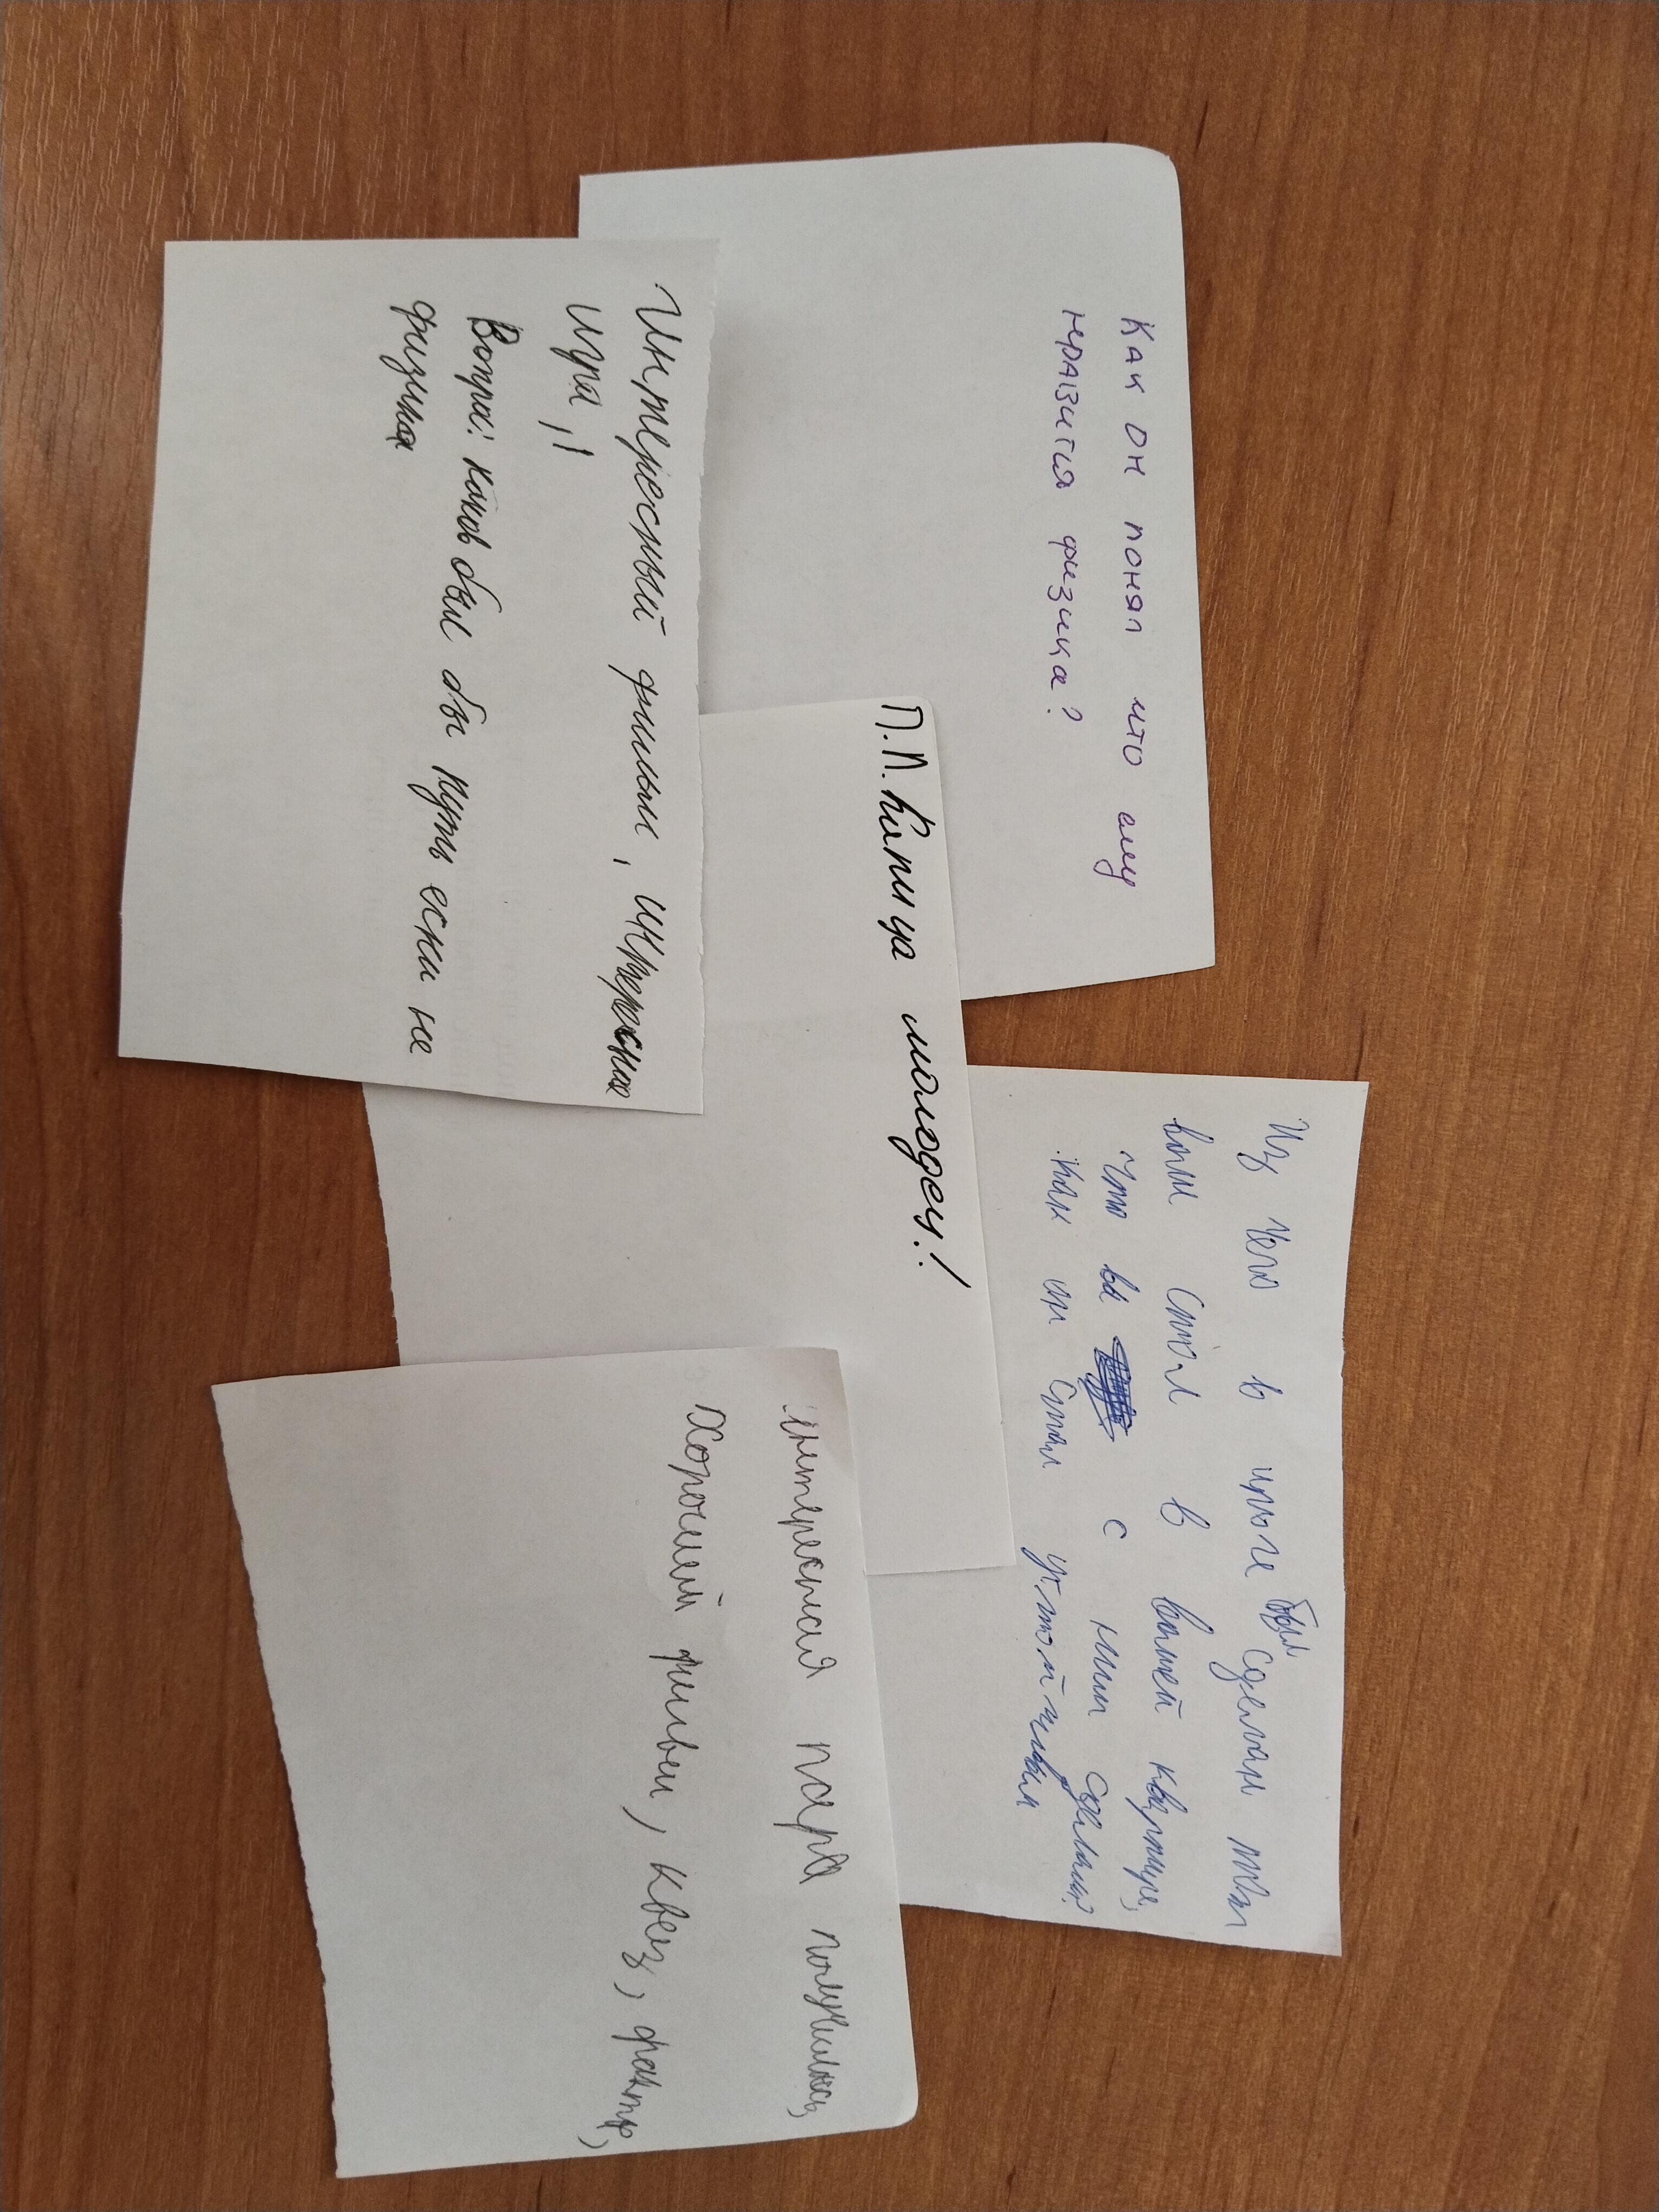 Как он понял что ему
нравится физика?
Интересный фильм, интересная
игра,!
Вопрос: каков был бы путь если не
физика
П.П. Капица молодец!
Из чего в игре был сделан
вам стол в вашей квартире,
Что вы с ним сделали?
как он стал устойчивым
интересная пара получилась,
Хороший фильм, квез, факты,